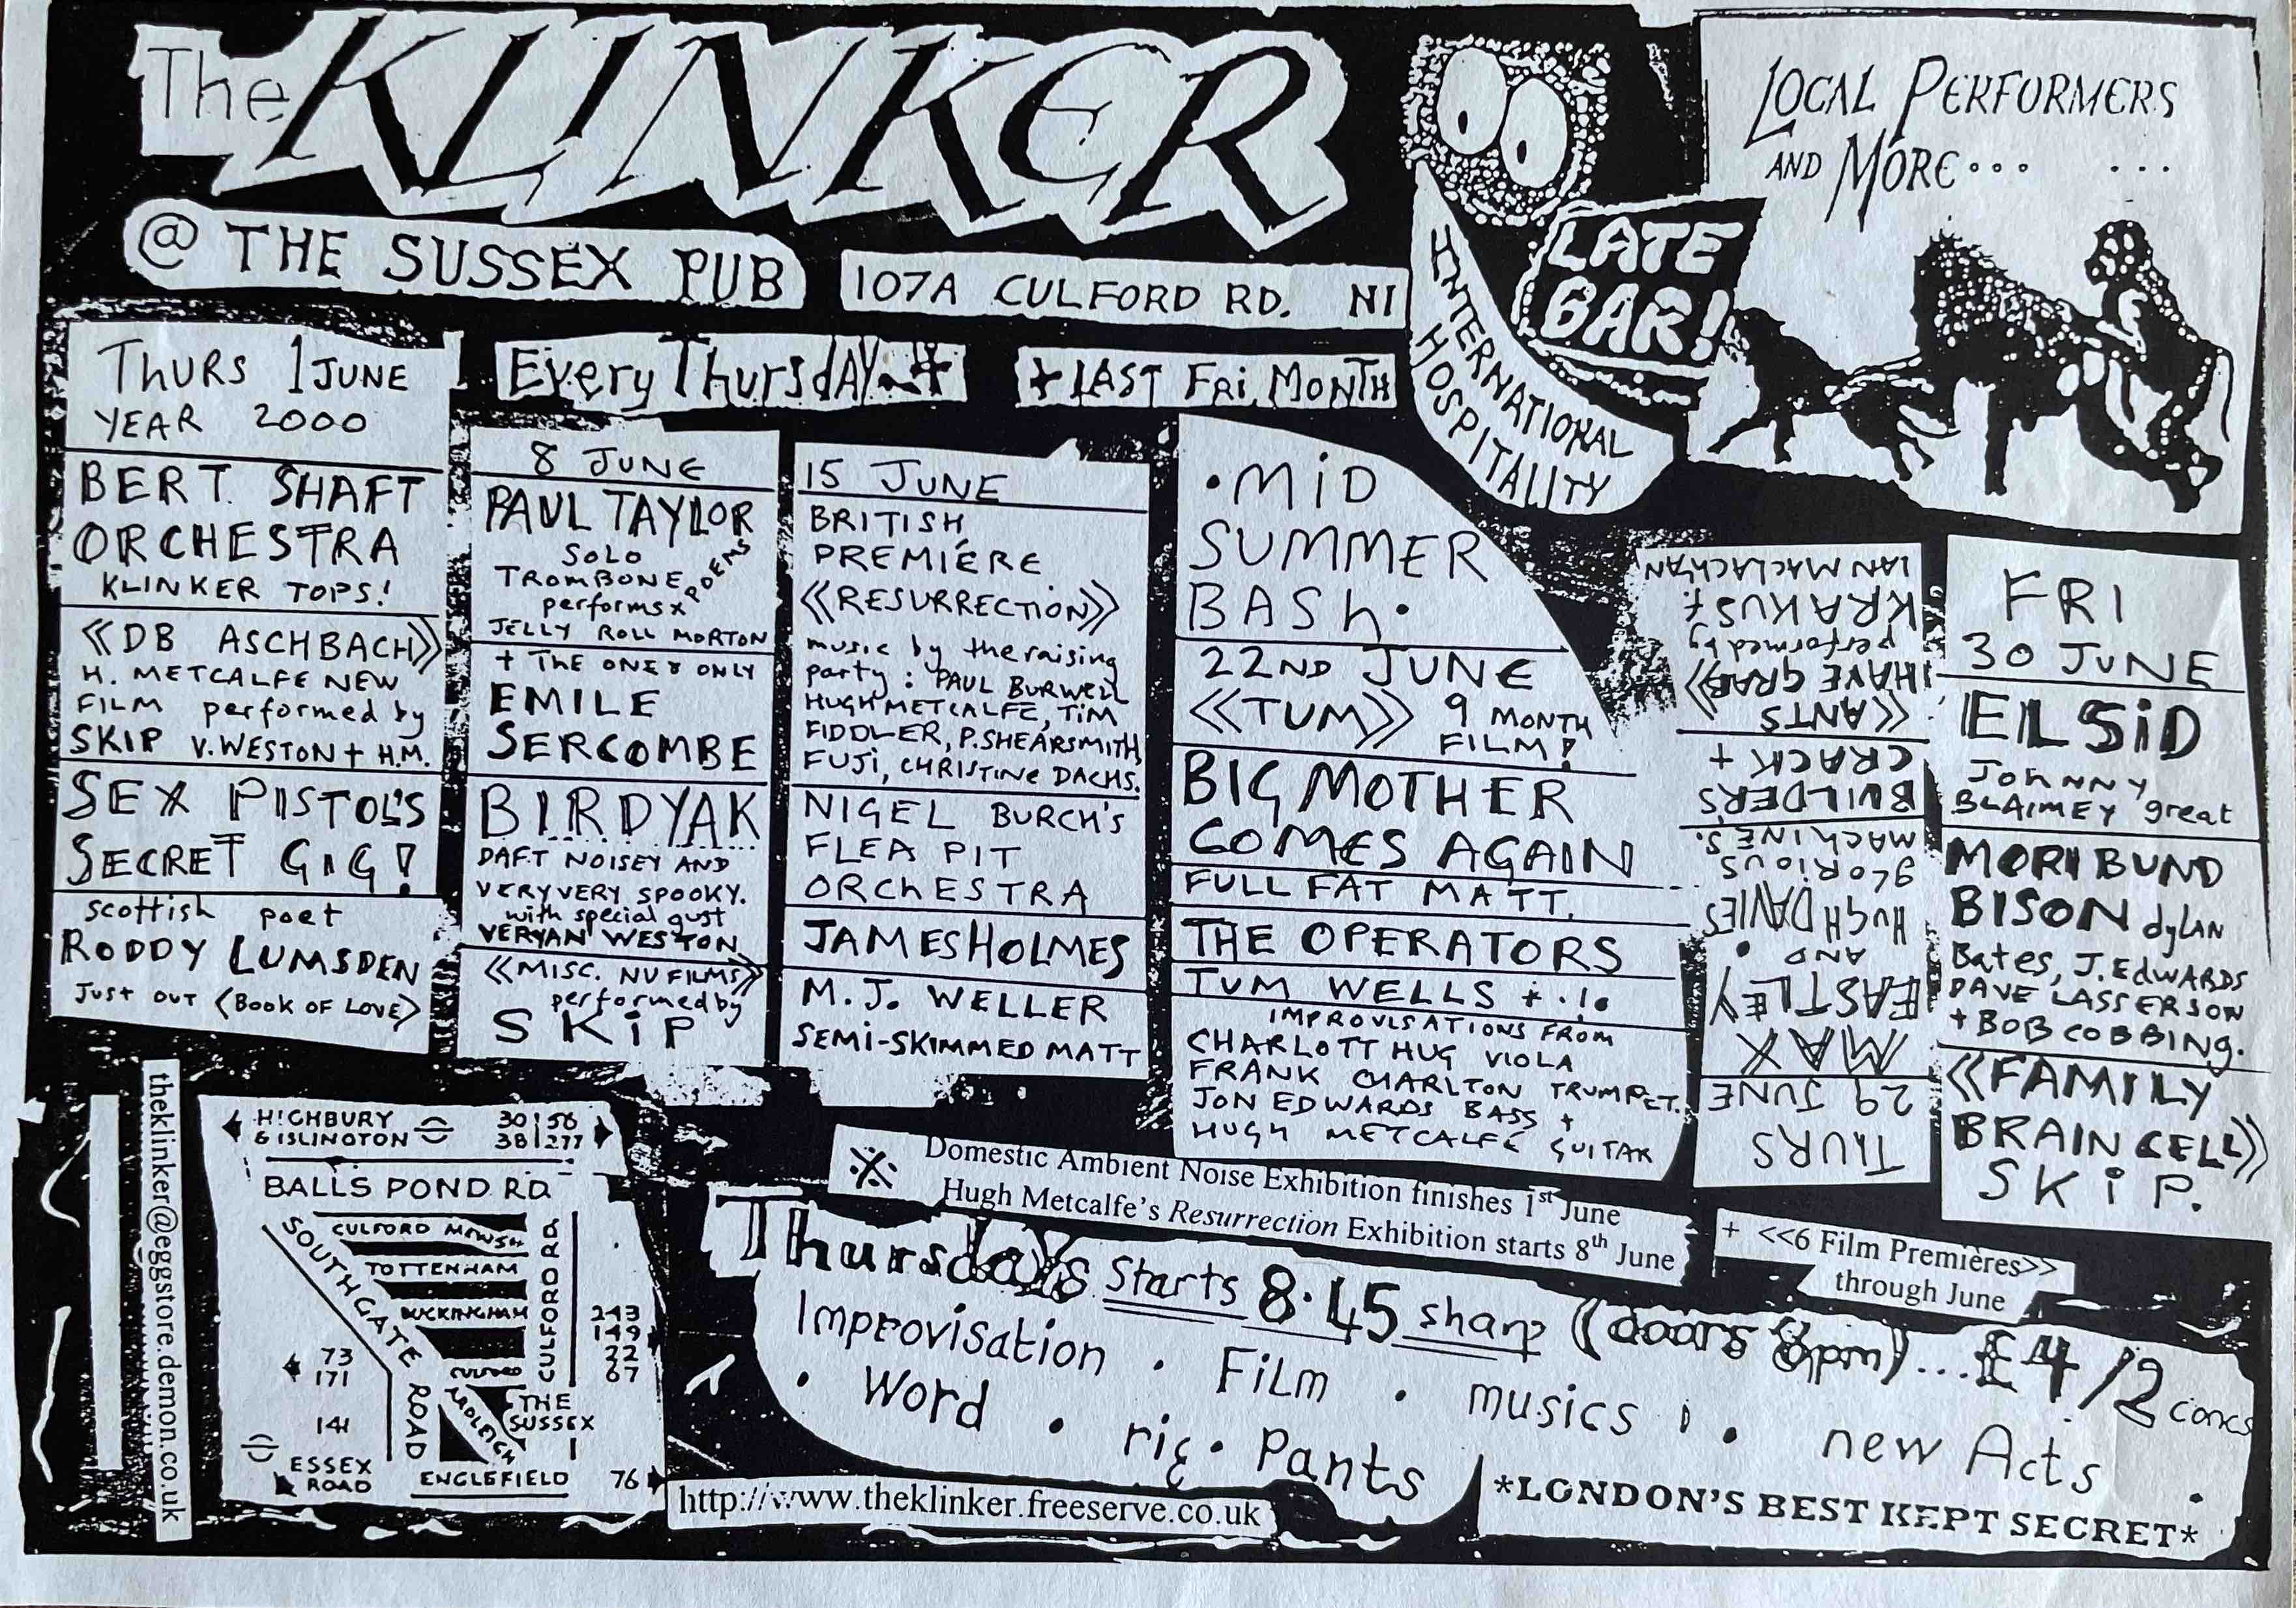 The KLINKER
@ THE SUSSEX PUB
107A CULFORD RD. N1
INTERNATIONAL
HOSPITALITY
LATE
BAR!
LOCAL PERFORMERS
AND MORE... ...
Every Thursday +
+ LAST FRi. MONTH
THURS 1 JUNE
YEAR 2000
BERT SHAFT
ORCHESTRA
KLINKER TOPS!
<<DB ASCHBACH>>
H. METCALFE NEW
FILM performed by
SKIP V. WESTON + H.M.
SEX PISTOL'S
SECRET GIG!
scottish poet
RODDY LUMSDEN
Just out <BOOK OF LOVE>
8 JUNE
PAUL TAYLOR
SOLO
TROMBONE
performs
JELLY ROLL MORTON
+ THE ONE & ONLY
EMILE
SERCOMBE
BIRDYAK
DAFT NOISEY AND
VERY VERY SPOOKY.
with special gust
VERYAN WESTON
<<MISC. NU FILMS>>
performed by
SKiP
15 JUNE
BRITISH
PREMIÉRE
<<RESURRECTION>>
music by the raising
party: PAUL BURWELL
HUGH METCALFE, TiM
FIDDLER, P. SHEARSMITH,
FUJi, CHRISTINE DACHS.
NIGEL BURCH'S
FLEA PIT
ORCHESTRA
JAMES HOLMES
M.J. WELLER
SEMI-SKIMMED MATT
• MiD
SUMMER
BASh •
22ND JUNE
<<TUM>> 9 MONTH
FILM!
BIG MOTHER
COMES AGAIN
FULL FAT MATT.
THE OPERATORS
TUM WELLS + .!.
IMPROVISATIONS FROM
CHARLOTT HUG VIOLA
FRANK CHARLTON TRUMPET.
JON EDWARDS BASS +
HUGH METCALFE GUITAR
THURS
29 JUNE
MAX
EASTLEY
AND •
HUGH DAVIES
glorious
MACHINES.
BUILDERS
CRACK +
<<ANTS
I HAVE GRAB>>
performed by
KRAKUS f.
IAN MACLACHLAN
FRI
30 JUNE
EL SiD
JOHNNY
BLAIMEY great
MORIBUND
BISON dyLAN
Bates, J. EdWARDS
DAVE LASSERSON
+ BOB COBBING.
<<FAMILY
BRAIN CELL>>
SKiP.
theklinker@eggstore.demon.co.uk
HIGHBURY
& ISLINGTON
30 56
38 277
BALLS POND RD
CULFORD MEWS
TOTTENHAM
BUCKINGHAM
CULFORD
SOUTHGATE ROAD
CULFORD RD.
243
149
22
67
73
171
141
THE
SUSSEX
ESSEX
ROAD
ENGLEFIELD
76
※ Domestic Ambient Noise Exhibition finishes 1st June
Hugh Metcalfe's Resurrection Exhibition starts 8th June
+ <<6 Film Premières>>
through June
Thursdays starts 8.45 sharp (doors 8pm)... £4/2 concs
Improvisation • FiLm • musics • new Acts •
• Word • rig • Pants
http://www.theklinker.freeserve.co.uk
*LONDON'S BEST KEPT SECRET*